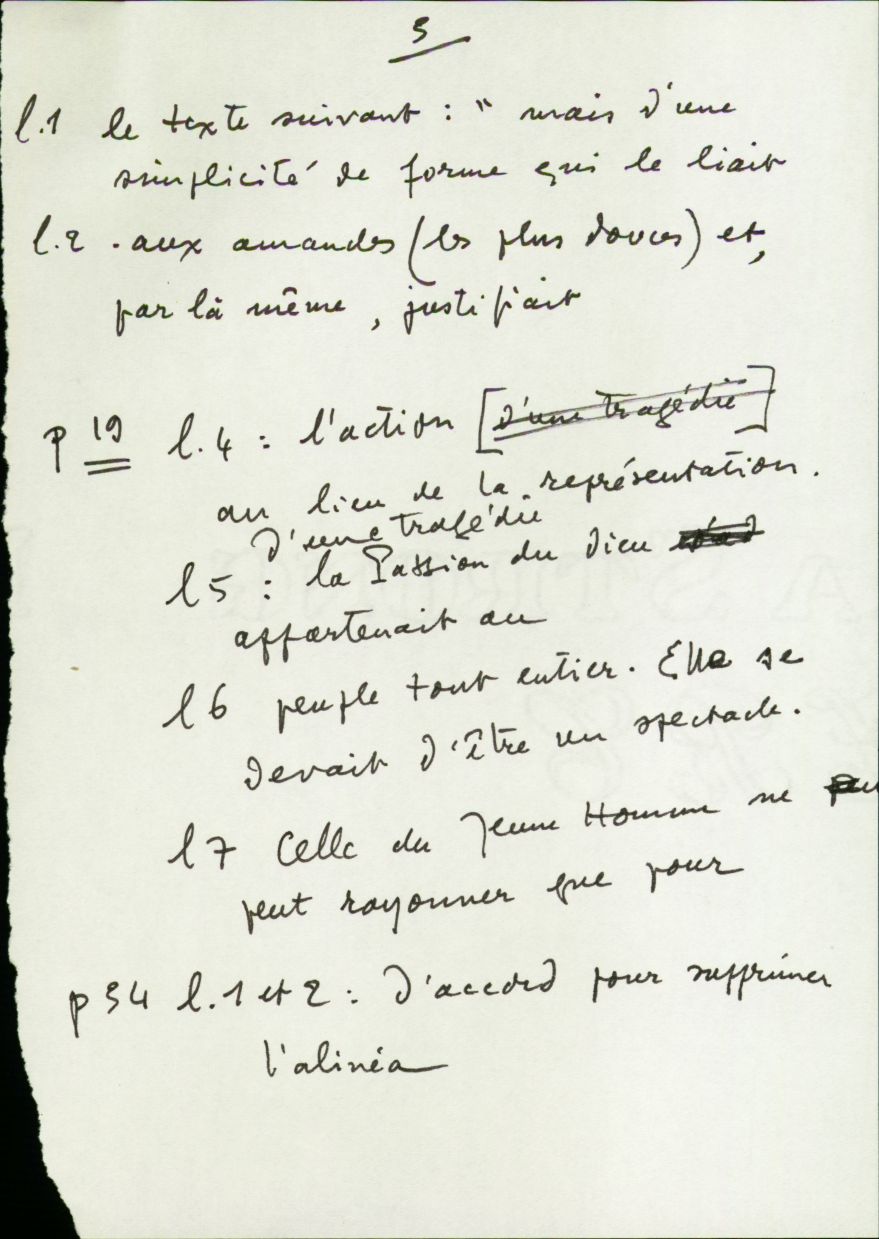 3
l.1 le texte suivant : " mais d'une
simplicité de forme qui le liait
l.2 . aux amandes (les plus douces) et,
par là même, justifiait
p 19 l.4 : l'action [d'une tragédie]
au lieu de la représentation.
d'une tragédie
l 5 : la Passion du dieu
appartenait au
l 6 peuple tout entier. Elle se
devait d'être un spectacle.
l 7 Celle du Jeune Homme ne peu
peut rayonner que pour
p 34 l.1 et 2 : d'accord pour supprimer
l'alinéa